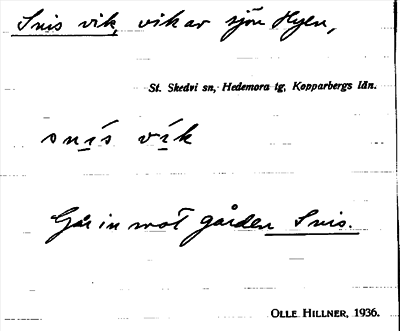 Snis vik, vik av sjön Hyen,
St. Skedvi sn, Hedemora tg, Kopparbergs län.
snís vík
Går in mot gården Snis.
OLLE HILLNER, 1936.